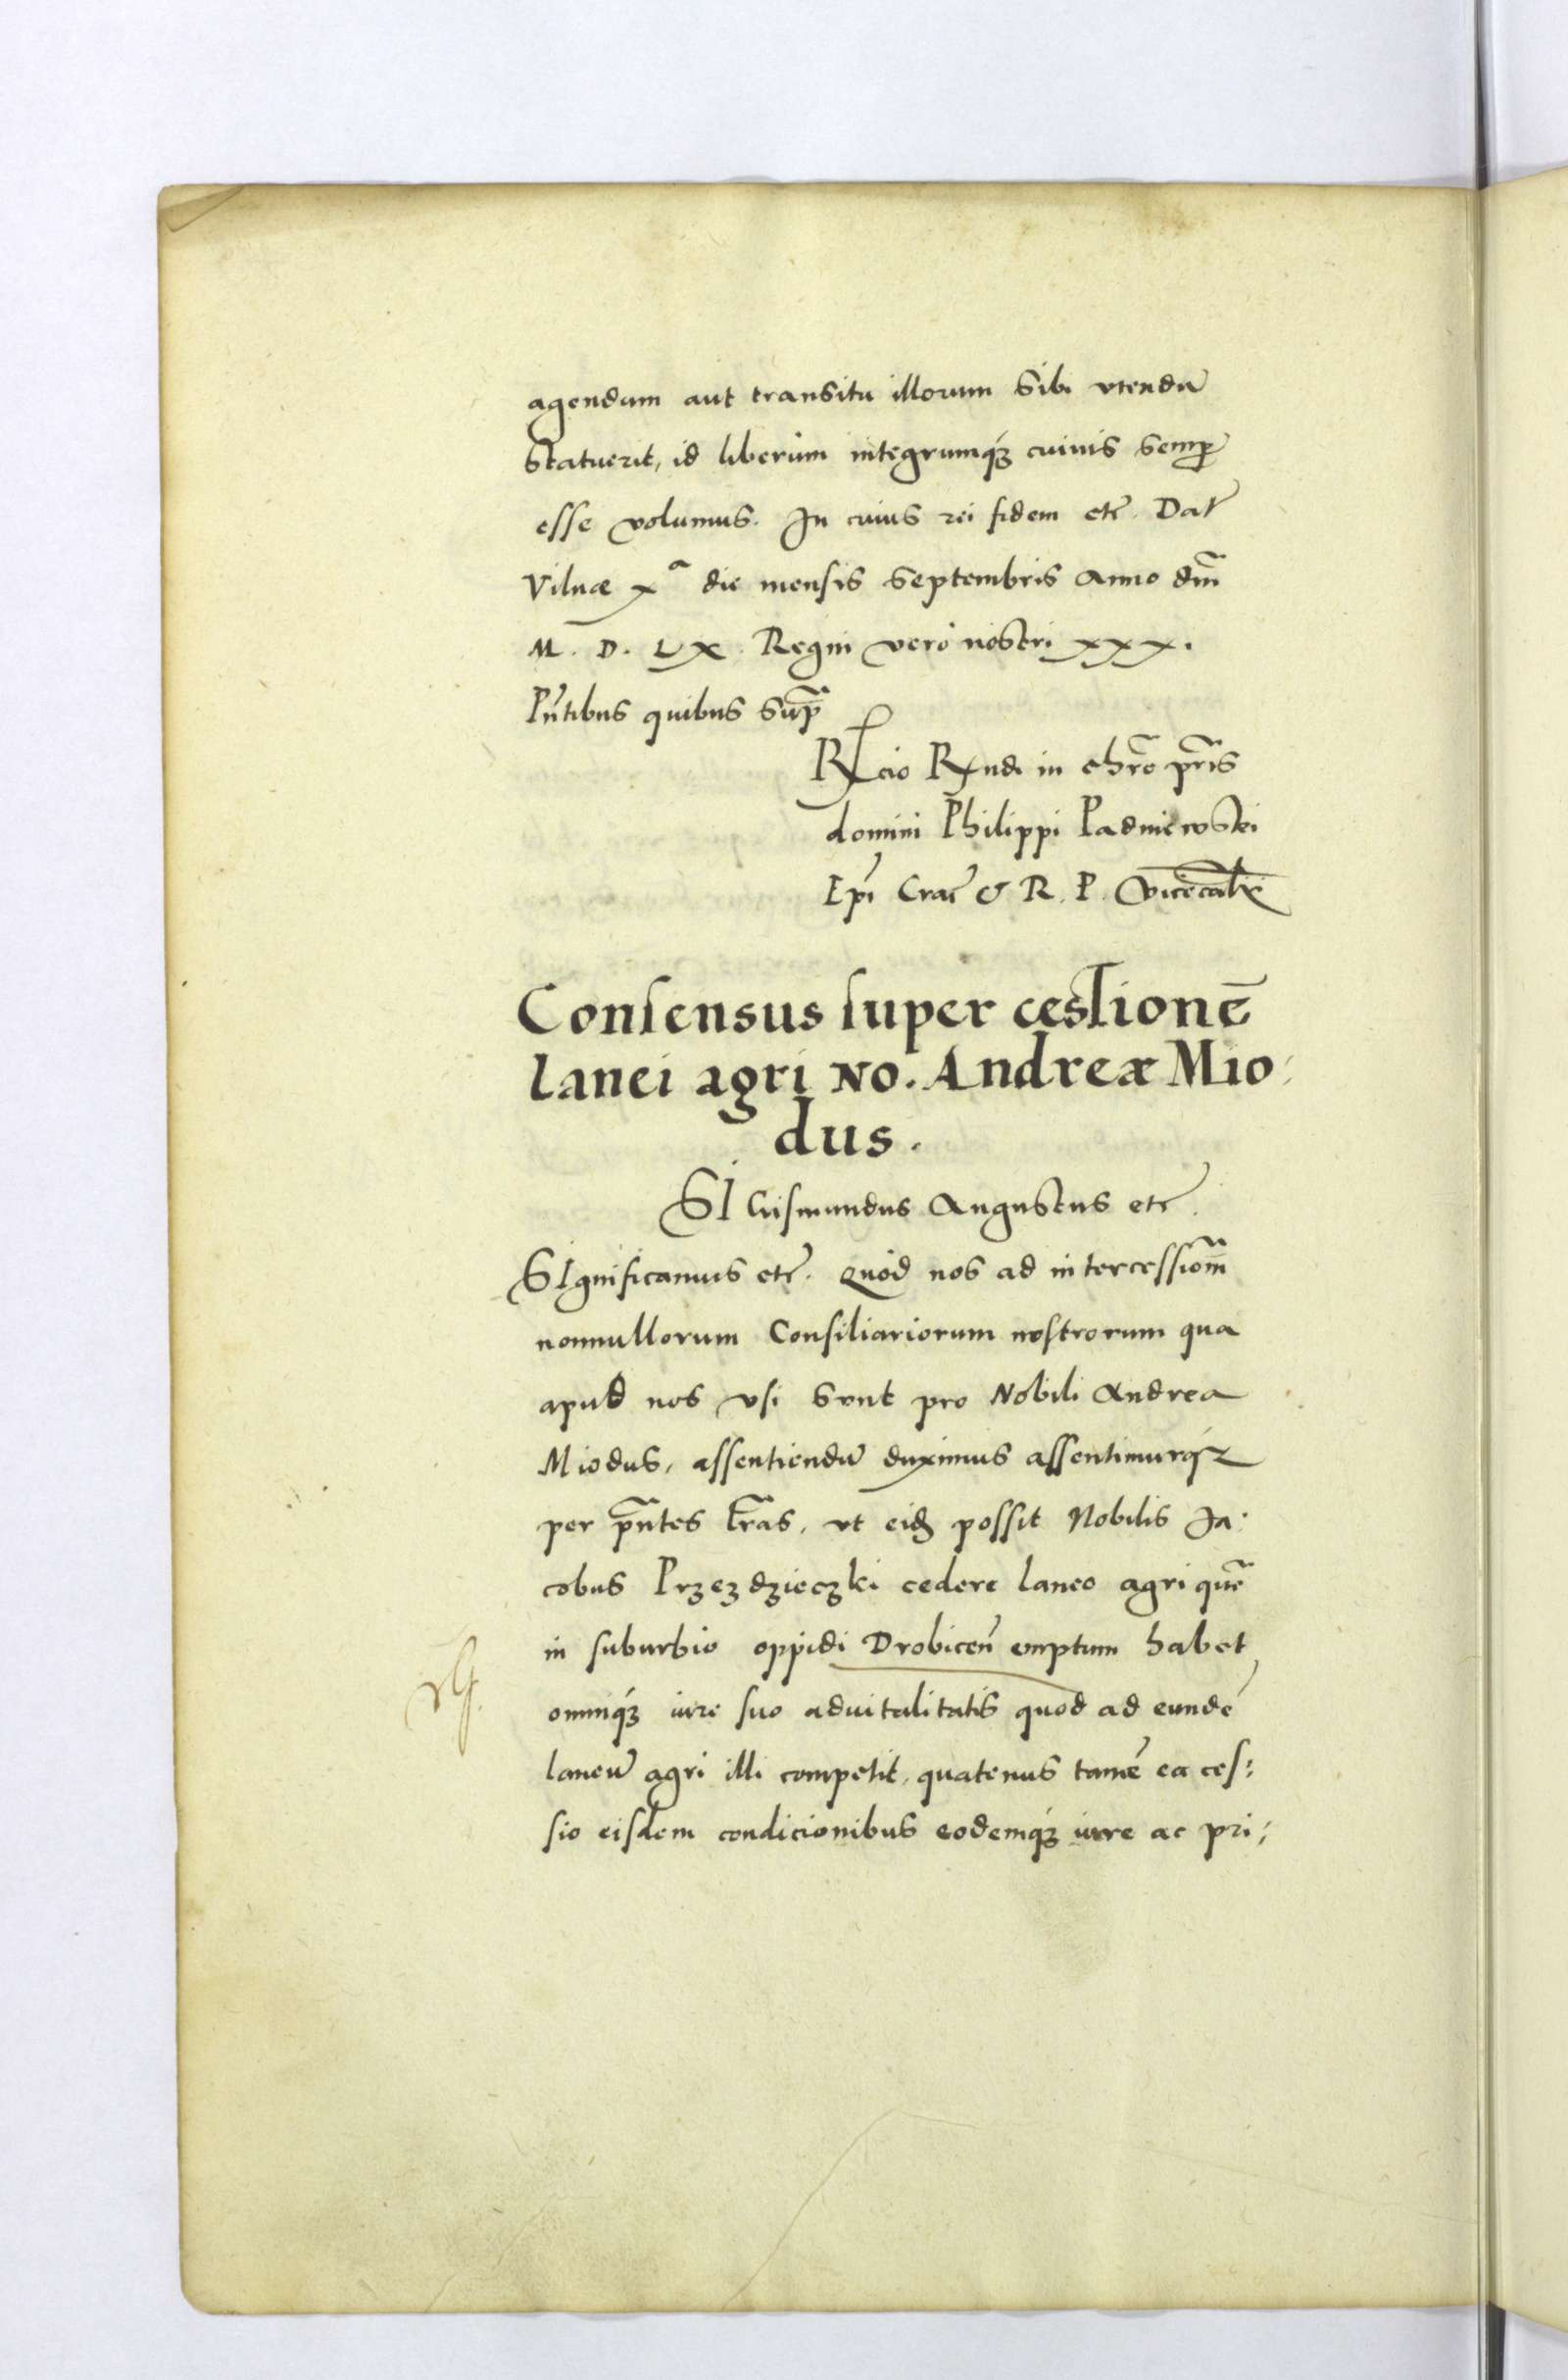 agendum aut transitu illorum sibi vtendũ
statuerit, id liberum integrumq́ꝫ cuiuis semꝑ
esse volumus. In cuius rei fidem etc̃. Dat̃
Vilnæ xª die mensis Septembris Anno dñi
M. D. LX. Regni vero nostri xxx.
Pñtibus quibus supᷓ
Rl̃cio Rx̃ndi in chr̃o pr̃is
domini Philippi Padniewski
Ep̃i Crac̃ & R. P. Vicecal̃x
Consensus super cessionẽ
lanei agri No. Andreæ Mio:
dus.
SIGismundus Augustus etc̃.
SIgnificamus etc̃. Quòd nos ad intercessionẽ
nonnullorum Consiliariorum nostrorum qua
apud nos vsi sunt pro Nobili Andrea
Miodus, assentiendũ duximus assentimurq́ꝫ
per pñtes lr̃as, vt eid̃ possit Nobilis Ja:
cobus Przezdzieczki cedere laneo agri quẽ
in suburbio oppidi Drobiceñ emptum habet
omniq́ꝫ iure suo aduitalitatis quod ad eundẽ
laneũ agri illi competit, quatenus tamẽ ea ces:
sio eisdem condicionibus eodemq́ꝫ iure ac pri: